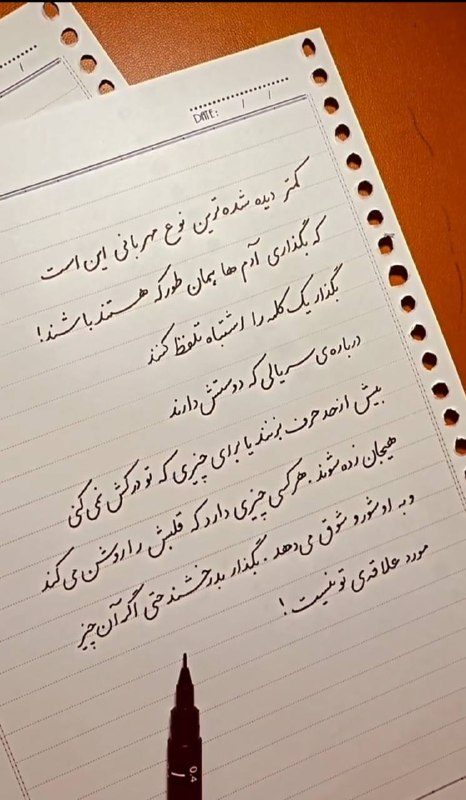 DATE: / /
کمتر دیده شده‌ترین نوع مهربانی این است
که بگذاری آدم ها همان طور که هستند باشند!
بگذار یک کلمه را اشتباه تلفظ کنند
درباره‌ی سریالی که دوستش دارند
بیش از حد حرف بزنند یا برای چیزی که تو درکش نمی کنی
هیجان زده شوند. هر کسی چیزی دارد که قلبش را روشن می کند
و به او شور و شوق می دهد. بگذار بدرخشند حتی اگر آن چیز
مورد علاقه‌ی تو نیست!
0.4